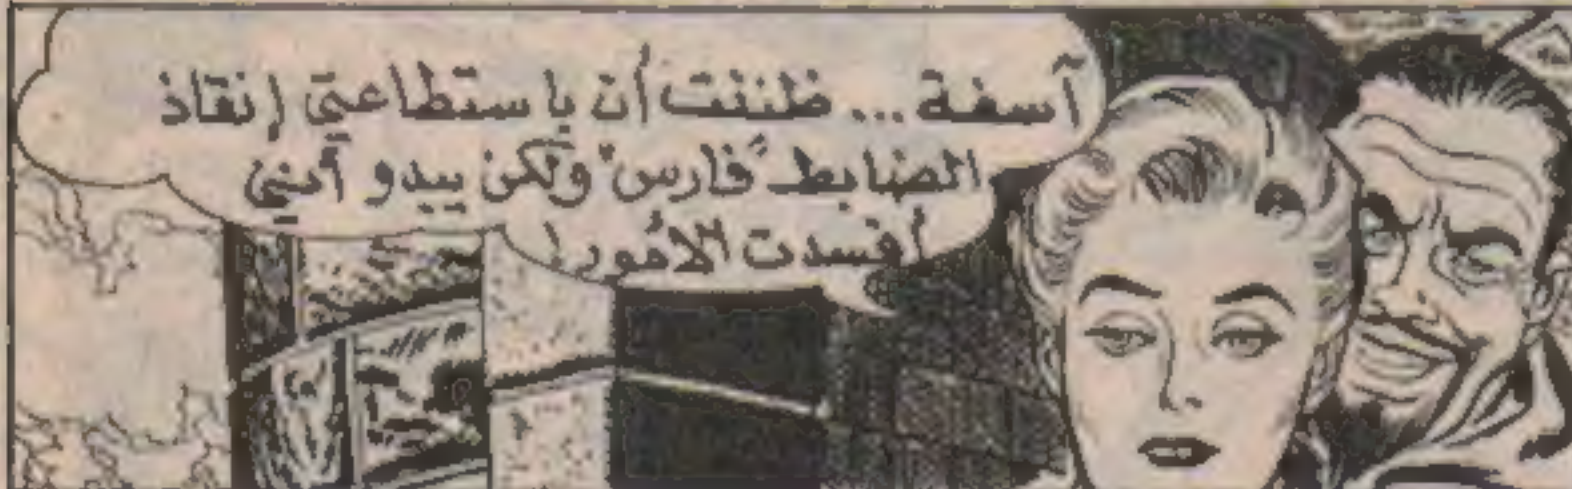 آسفة... ظننت أن باستطاعتي إنقاذ
الضابط "فارس" ولكن يبدو أنني
أفسدت الأمور!